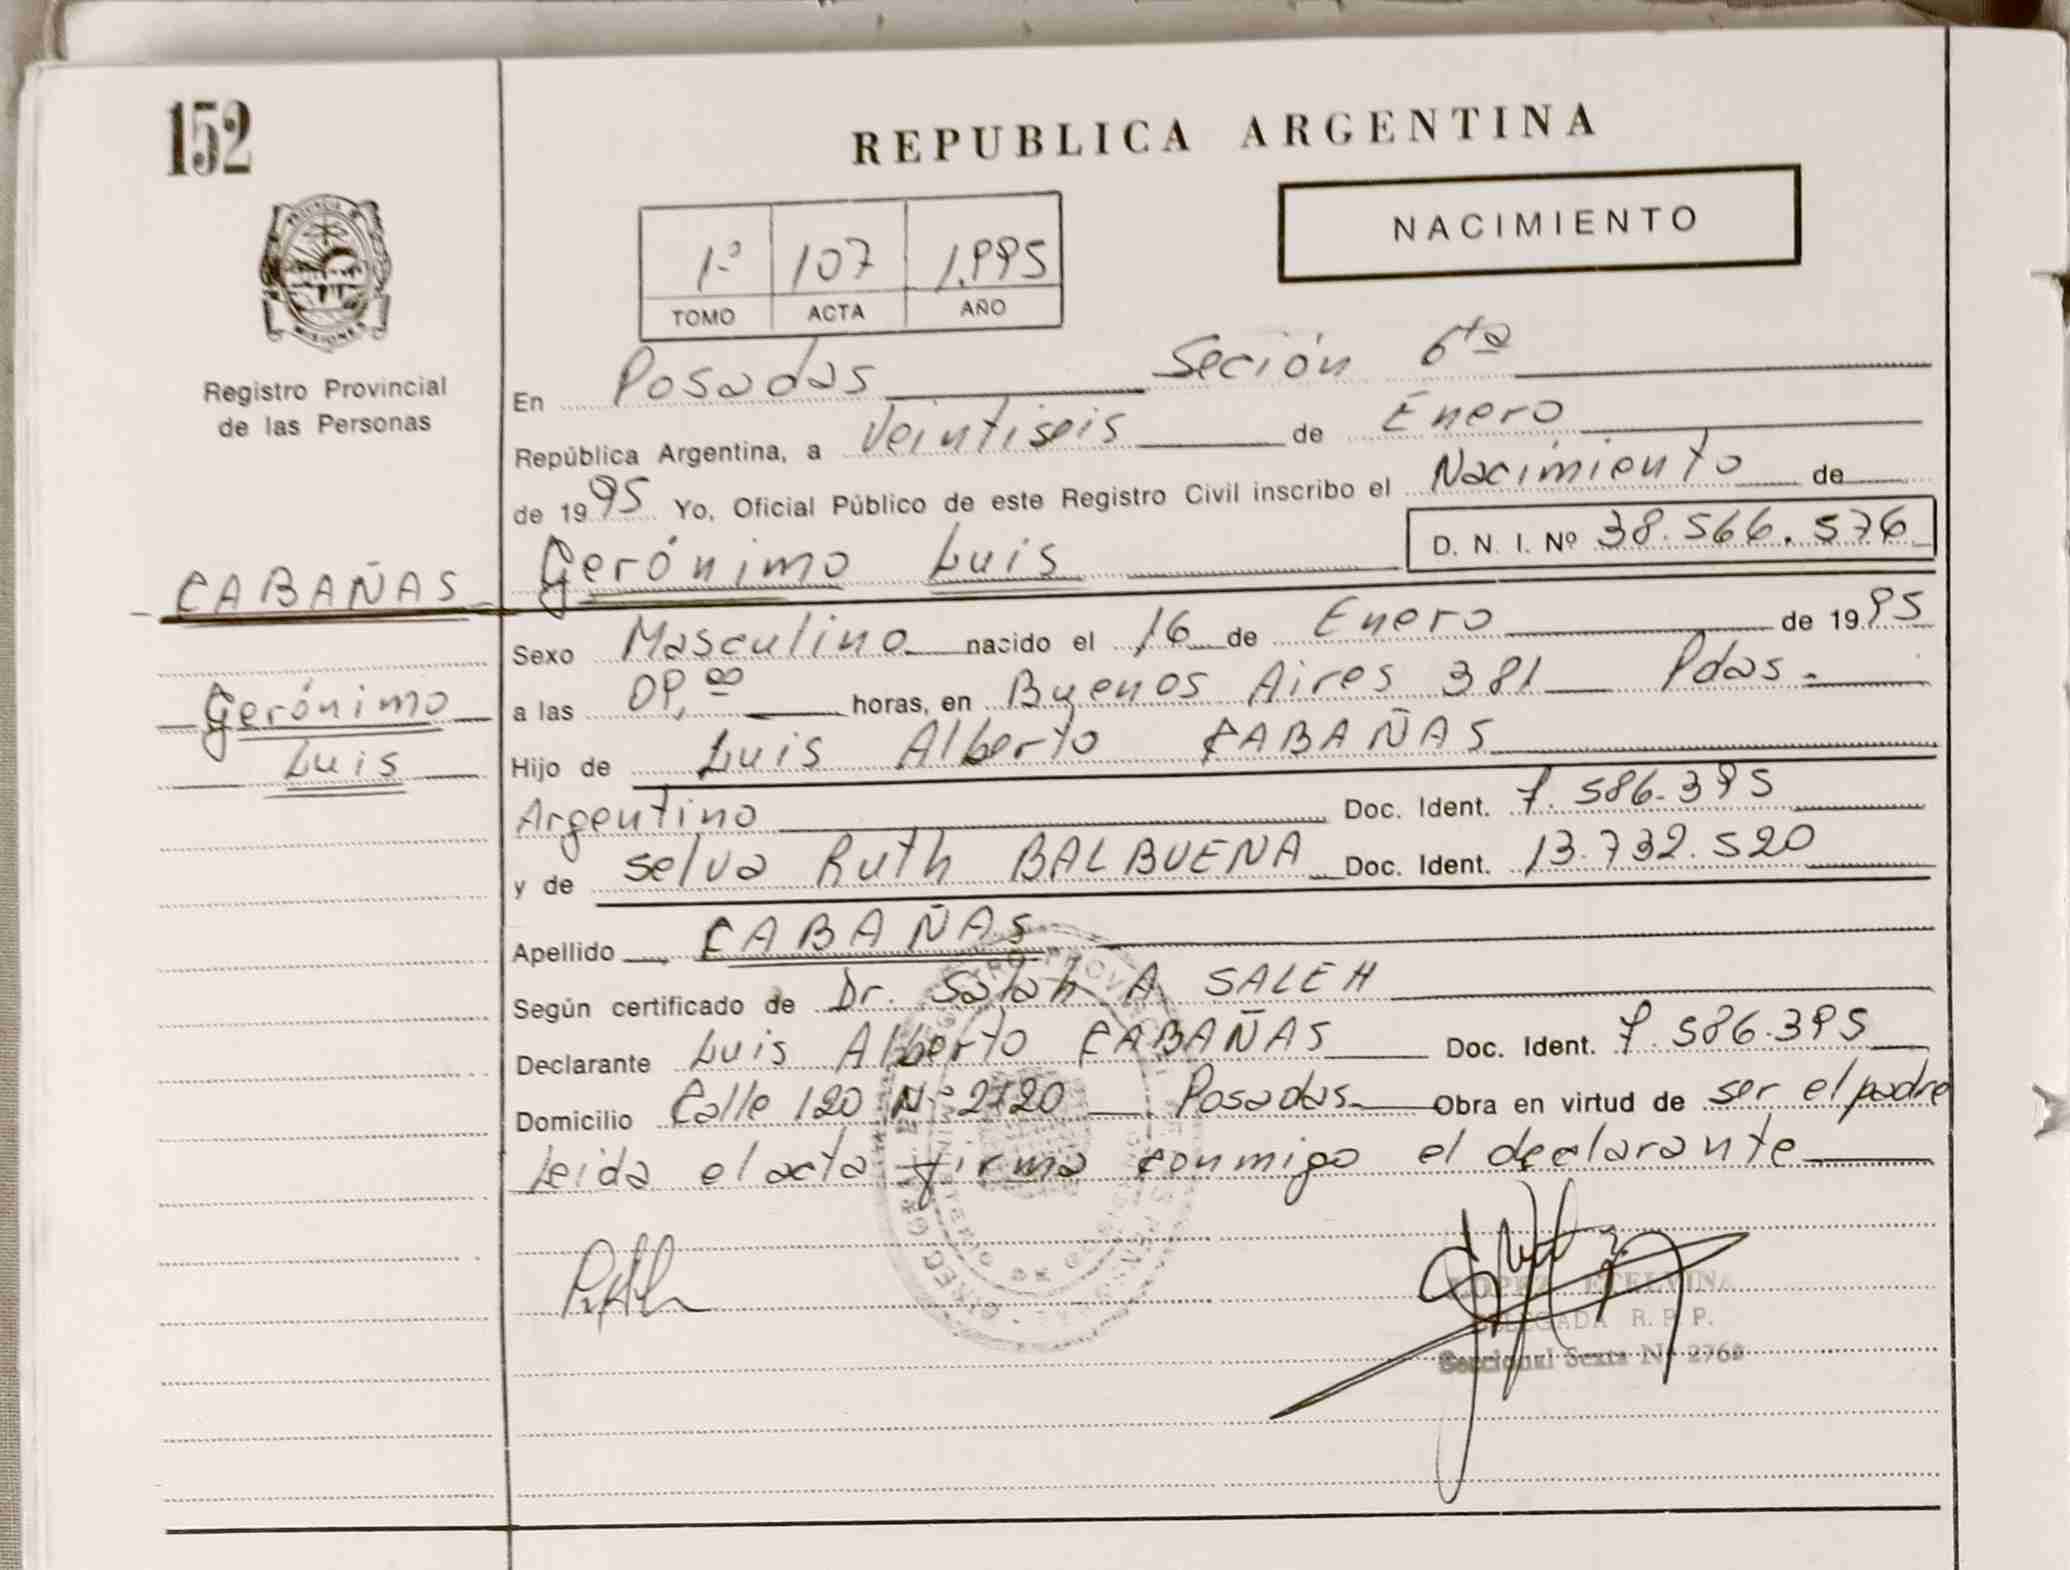 152
REPUBLICA ARGENTINA
NACIMIENTO
1º 107 1.995
TOMO ACTA AÑO
PROVINCIA DE MISIONES
Registro Provincial
de las Personas
En Posadas Seción 6ta
República Argentina, a Veintiseis de Enero
de 1995 Yo, Oficial Público de este Registro Civil inscribo el Nacimiento de
Gerónimo Luis D. N. I. Nº 38.566.576
CABAÑAS
Gerónimo
Luis
Sexo Masculino nacido el 16 de Enero de 1995
a las 09,00 horas, en Buenos Aires 381 Pdas.
Hijo de Luis Alberto CABAÑAS
Argentino Doc. Ident. 7.586.395
y de Selva Ruth BALBUENA Doc. Ident. 13.732.520
Apellido CABAÑAS
Según certificado de Dr. Salah A. SALEH
Declarante Luis Alberto CABAÑAS Doc. Ident. 7.586.395
Domicilio Calle 120 Nº 2720 Posadas Obra en virtud de ser el padre
Leida el acta firma conmigo el declarante
LOPEZ ETELVINA
DELEGADA R. P. P.
Seccional Sexta Nº 2768